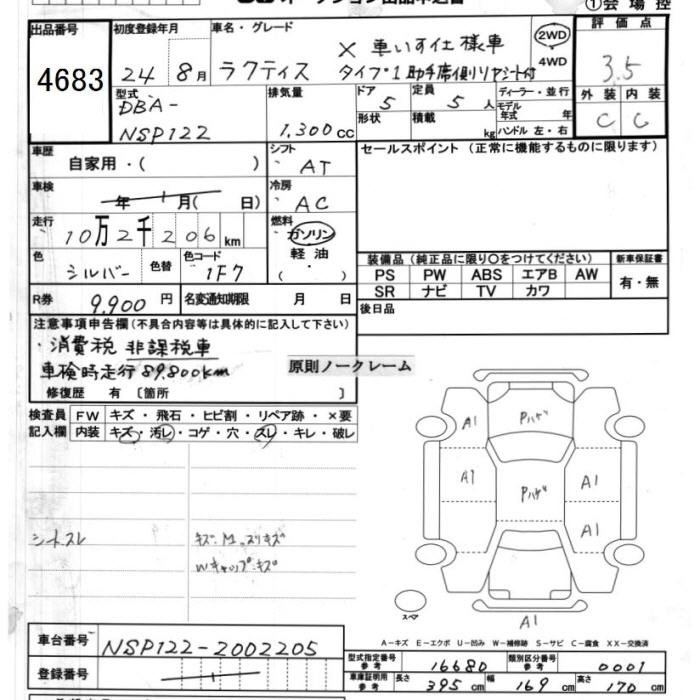 ①会場控
出品番号 初度登録年月 車名・グレード 2WD 評価点
4683 24年 8月 ラクティス × 車いす仕様車 4WD 3.5
タイプ1 助手席側リヤシート付
型式 排気量 ドア 定員 ディーラー・並行 外装 内装
DBA- 5 5人 モデル年式 年 C C
NSP122 1,300cc 形状 積載 kg ハンドル 左・右
車歴 シフト セールスポイント (正常に機能するものに限ります)
自家用・( ) AT
車検 冷房
年 月( 日) AC
走行 燃料
10万2千206km ガソリン
色 色替 色コード 軽油 装備品(純正品に限り〇をつけてください) 新車保証書
シルバー 1F7 ・( ) PS PW ABS エアB AW 有・無
R券 名変通知期限 SR ナビ TV カワ
9,900円 月 日 後日品
注意事項申告欄(不具合内容等は具体的に記入して下さい)
・消費税 非課税車
車検時走行89,800km 原則ノークレーム
修復歴 有 [箇所 ]
検査員 FW キズ・飛石・ヒビ割・リペア跡・×要
記入欄 内装 キズ・汚レ・コゲ・穴・スレ・キレ・破レ
A1 Pハゲ
A1 Pハゲ A1
A1
シートスレ
Wキャップキズ
スペア
A1
A-キズ E-エクボ U-凹み W-補修跡 S-サビ C-腐食 XX-交換済
車台番号 NSP122-2002205
型式指定番号 参考 16680 類別区分番号 参考 0001
登録番号 車庫証明用 参考 長さ 395cm 幅 169cm 高さ 170cm